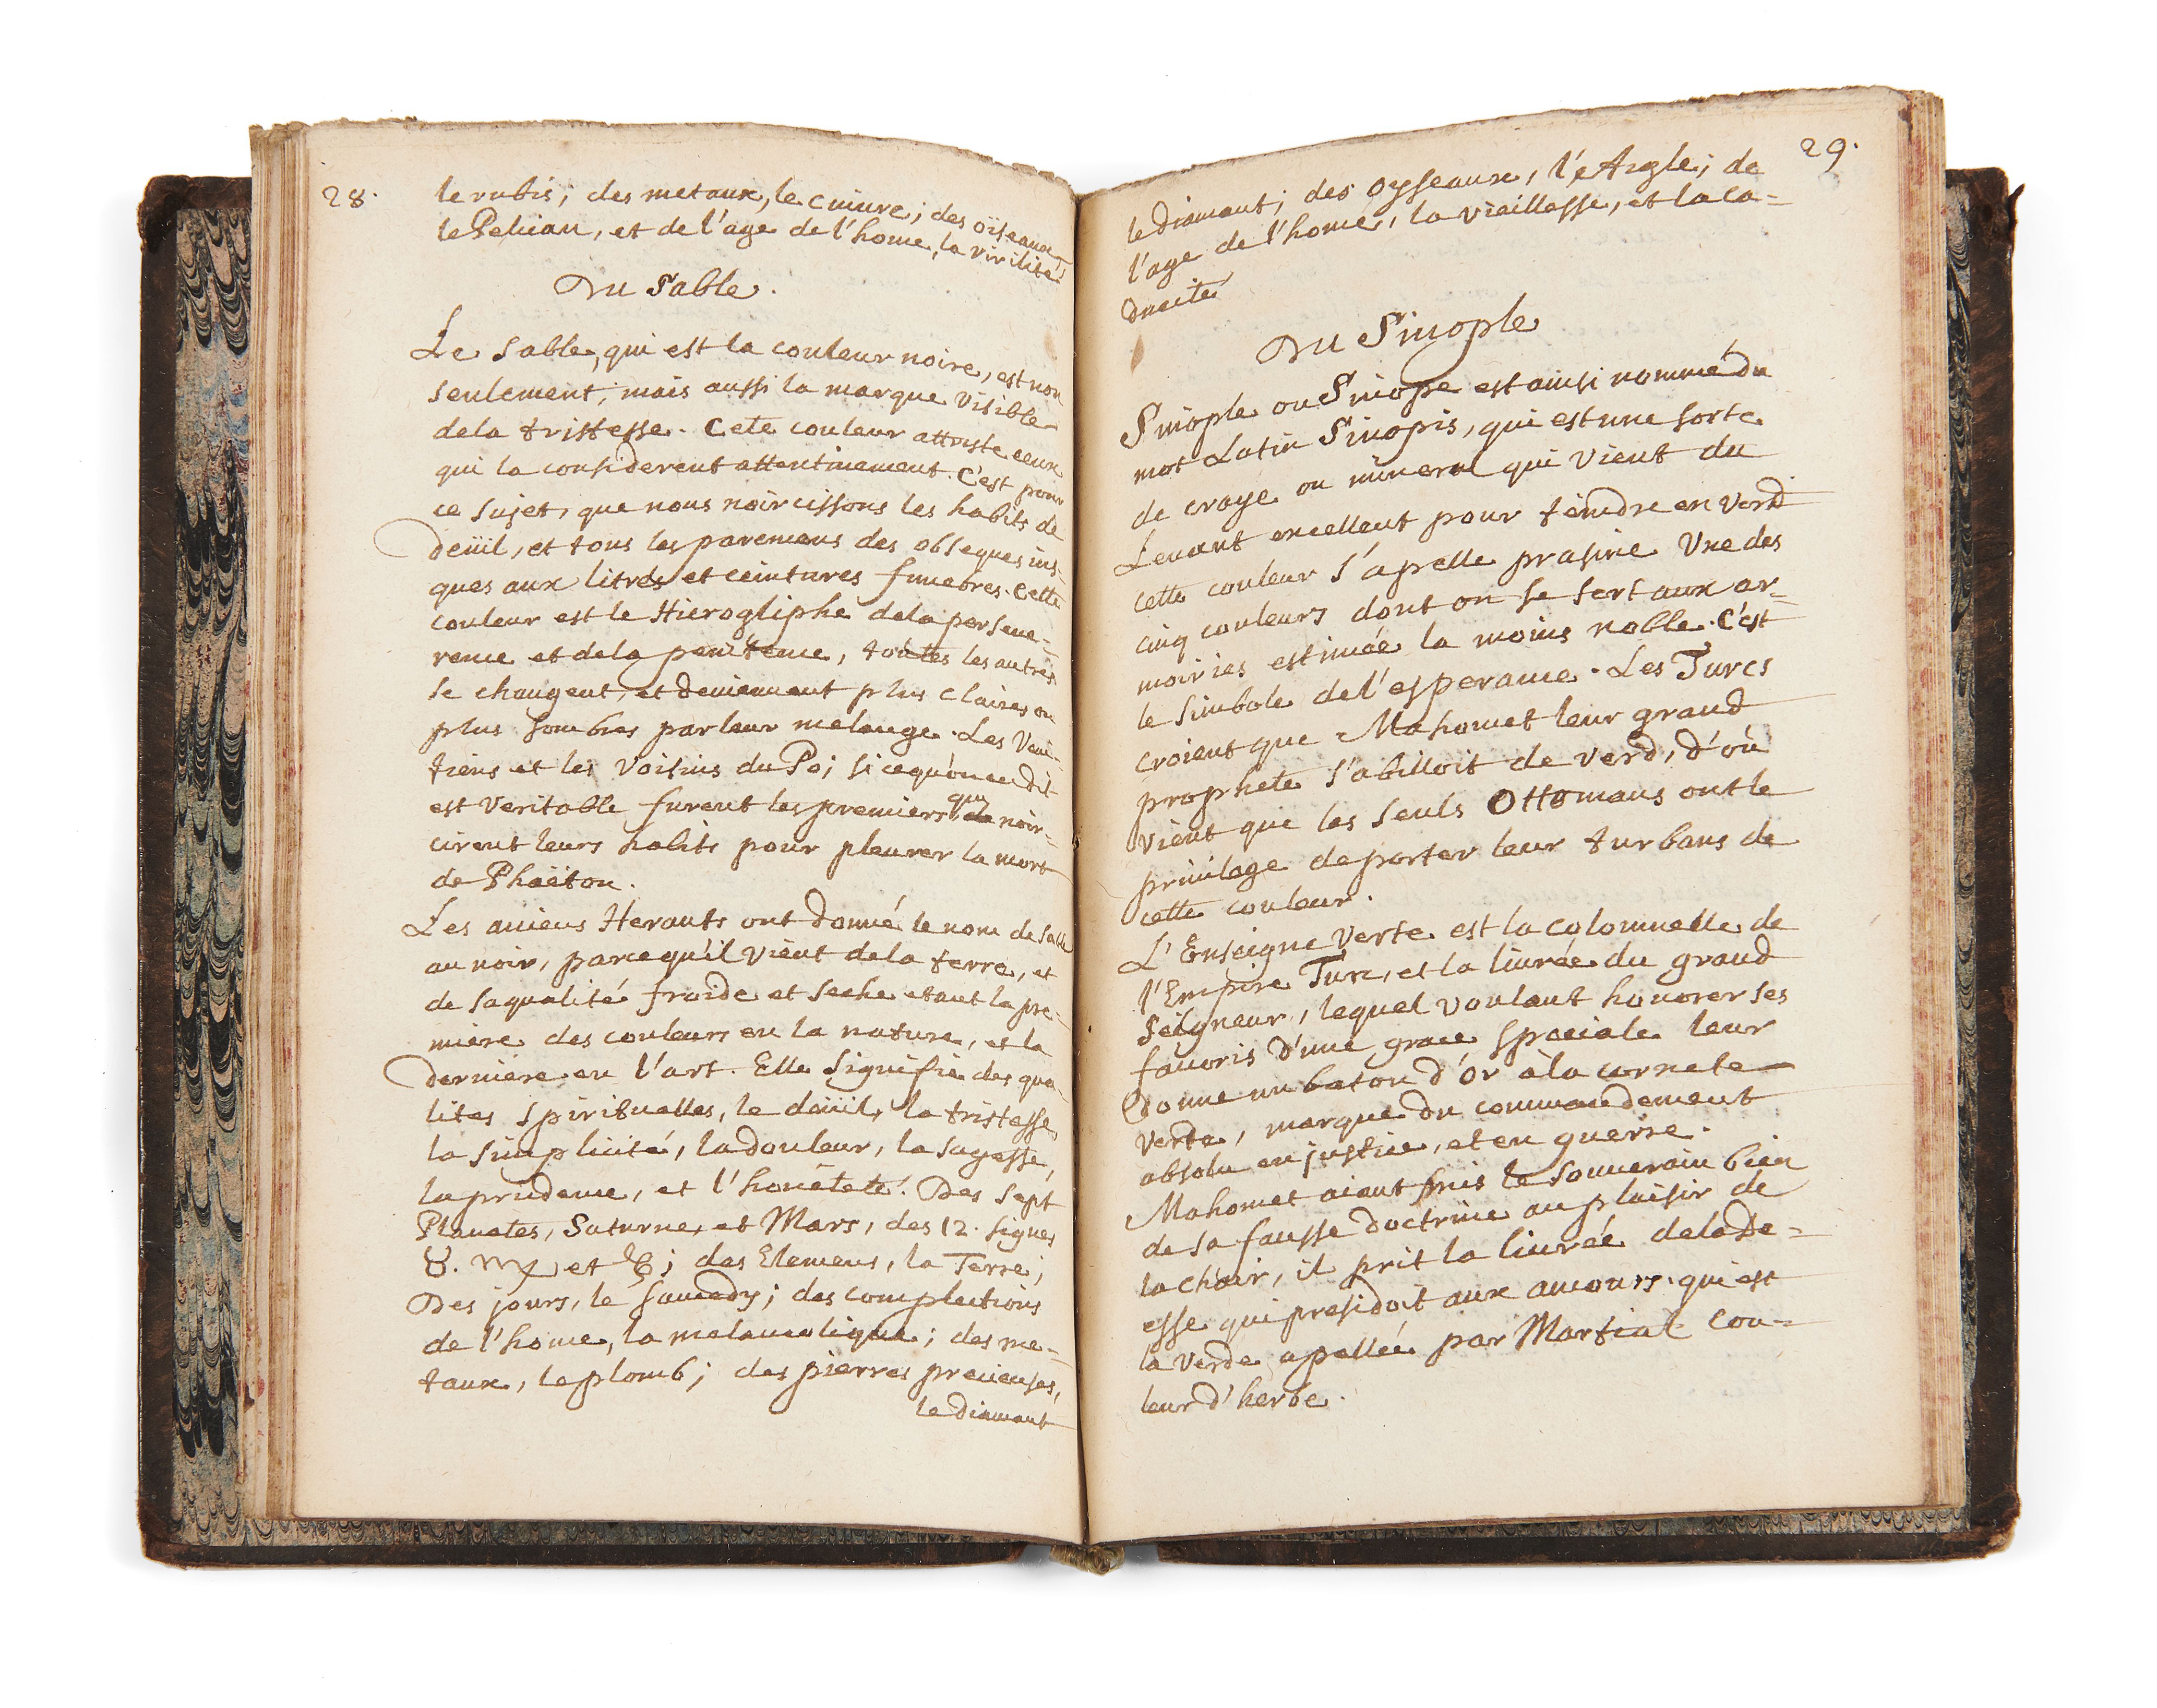 28.
le rubis; des metaux, le cuivre; des oïseaux
le Pelican, et de l'age de l'home, la virilité
Du Sable.
Le sable, qui est la couleur noire, est non
seulement, mais aussi la marque visible
dela tristesse. Cete couleur attriste ceux
qui la considerent attentivement. C'est pour
ce sujet, que nous noircissons les habits de
deüil, et tous les paremens des obseques jus-
ques aux litres et ceintures funebres. Cette
couleur est le Hierogliphe dela perseve-
rence et dela penitence, toutes les autres
se changent, et deviennent plus claires ou
plus sombres par leur melange. Les Veni-
tiens et les Voisins du Po; si cequ'on en dit
est Veritable furent les premiers qui noir-
cirent leurs habits pour pleurer la mort
de Phaëton.
Les anciens Herauts ont donné le nom de sable
au noir, parcequ'il vient dela terre, et
de saqualité froide et seche etant la pre-
miere des couleurs en la nature, et la
derniere en l'art. Elle signifie des qua-
lites spirituelles, le deüil, la tristesse,
la simplicité, la douleur, la sagesse,
la prudence, et l'honêteté. Des sept
Planetes, Saturne, et Mars, des 12. signes
♉. ♍ et ♑; des Elemens, la Terre;
Des jours, le samedy; des complections
de l'home, la melancolique; des me-
taux, le plomb; des pierres precieuses,
le diamant
29.
le diamant; des oyseaux, l'Aigle; de
l'age de l'home, la vieillesse, et la ca-
ducité
Du Sinople
Sinople ou Sinope est ainsi nommé du
mot Latin Sinopis, qui est une sorte
de craye ou mineral qui vient du
Levant excellent pour teindre en verd
cette couleur s'apelle prasine Une des
cinq couleurs dont on se sert aux ar-
moiries estimée la moins noble. C'est
le simbole de l'esperance. Les Turcs
croient que Mahomet leur grand
prophete s'abilloit de verd, d'où
vient que les seuls Ottomans ont le
privilege de porter leur turbans de
cette couleur.
L'Enseigne verte est la colonnelle de
l'Empire Turc, et la livrée du grand
Seigneur, lequel voulant honorer ses
favoris d'une grace speciale leur
donne un baton d'or à la cornete
verte, marque du commandement
absolu en justice, et en guerre.
Mahomet aiant mis le souverain bien
de sa fausse doctrine au plaisir de
la chair, il prit la livrée dela De-
esse qui presidoit aux amours. qui est
la verde apellée par Martial cou-
leur d'herbe.